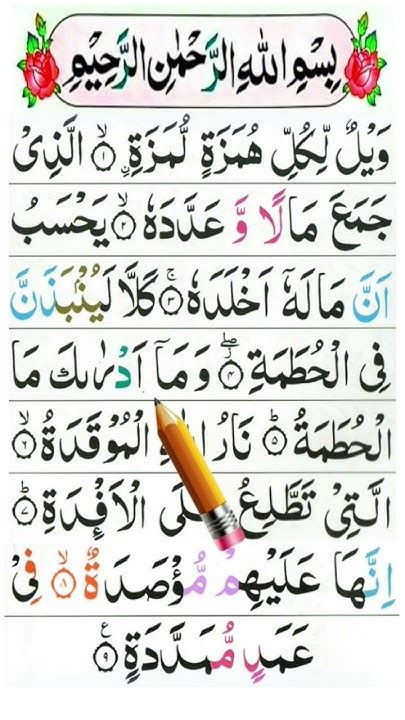 بِسْمِ اللهِ الرَّحْمٰنِ الرَّحِيْمِ
وَيْلٌ لِّكُلِّ هُمَزَةٍ لُّمَزَةِ ۙ۝۱ ۨالَّذِىْ
جَمَعَ مَالًا وَّ عَدَّدَهٗ ۙ۝۲ يَحْسَبُ
اَنَّ مَالَهٗۤ اَخْلَدَهٗ ۚ۝۳ كَلَّا لَيُنْۢبَذَنَّ
فِى الْحُطَمَةِ ۖ۝۴ وَ مَاۤ اَدْرٰىكَ مَا
الْحُطَمَةُ ؕ۝۵ نَارُ الْمُوْقَدَةُ ۙ۝۶
الَّتِىْ تَطَّلِعُ الْاَفْـِٕدَةِ ؕ۝۷
اِنَّهَا عَلَيْهِمْ مُّؤْصَدَةٌ ۙ۝۸ فِىْ
عَمَدٍ مُّمَدَّدَةٍ ۠۝۹